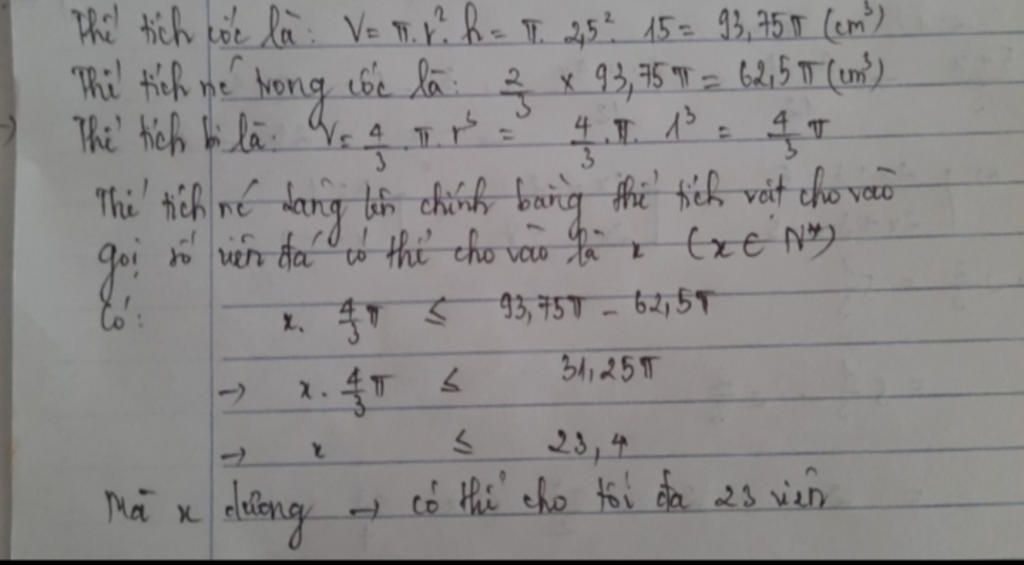 Thể tích cốc là: V = π.r².h = π. 2,5². 15 = 93,75π (cm³)
Thể tích nc trong cốc là: 2/3 × 93,75π = 62,5π (cm³)
→ Thể tích bi là: V = 4/3 . π . r³ = 4/3 . π . 1³ = 4/3 π
Thể tích nc dâng lên chính bằng thể tích vật cho vào
gọi số viên đá có thể cho vào là x (x ∈ N*)
Có: x. 4/3 π ≤ 93,75π - 62,5π
→ x. 4/3 π ≤ 31,25π
→ x ≤ 23,4
Mà x dương → có thể cho tối đa 23 viên